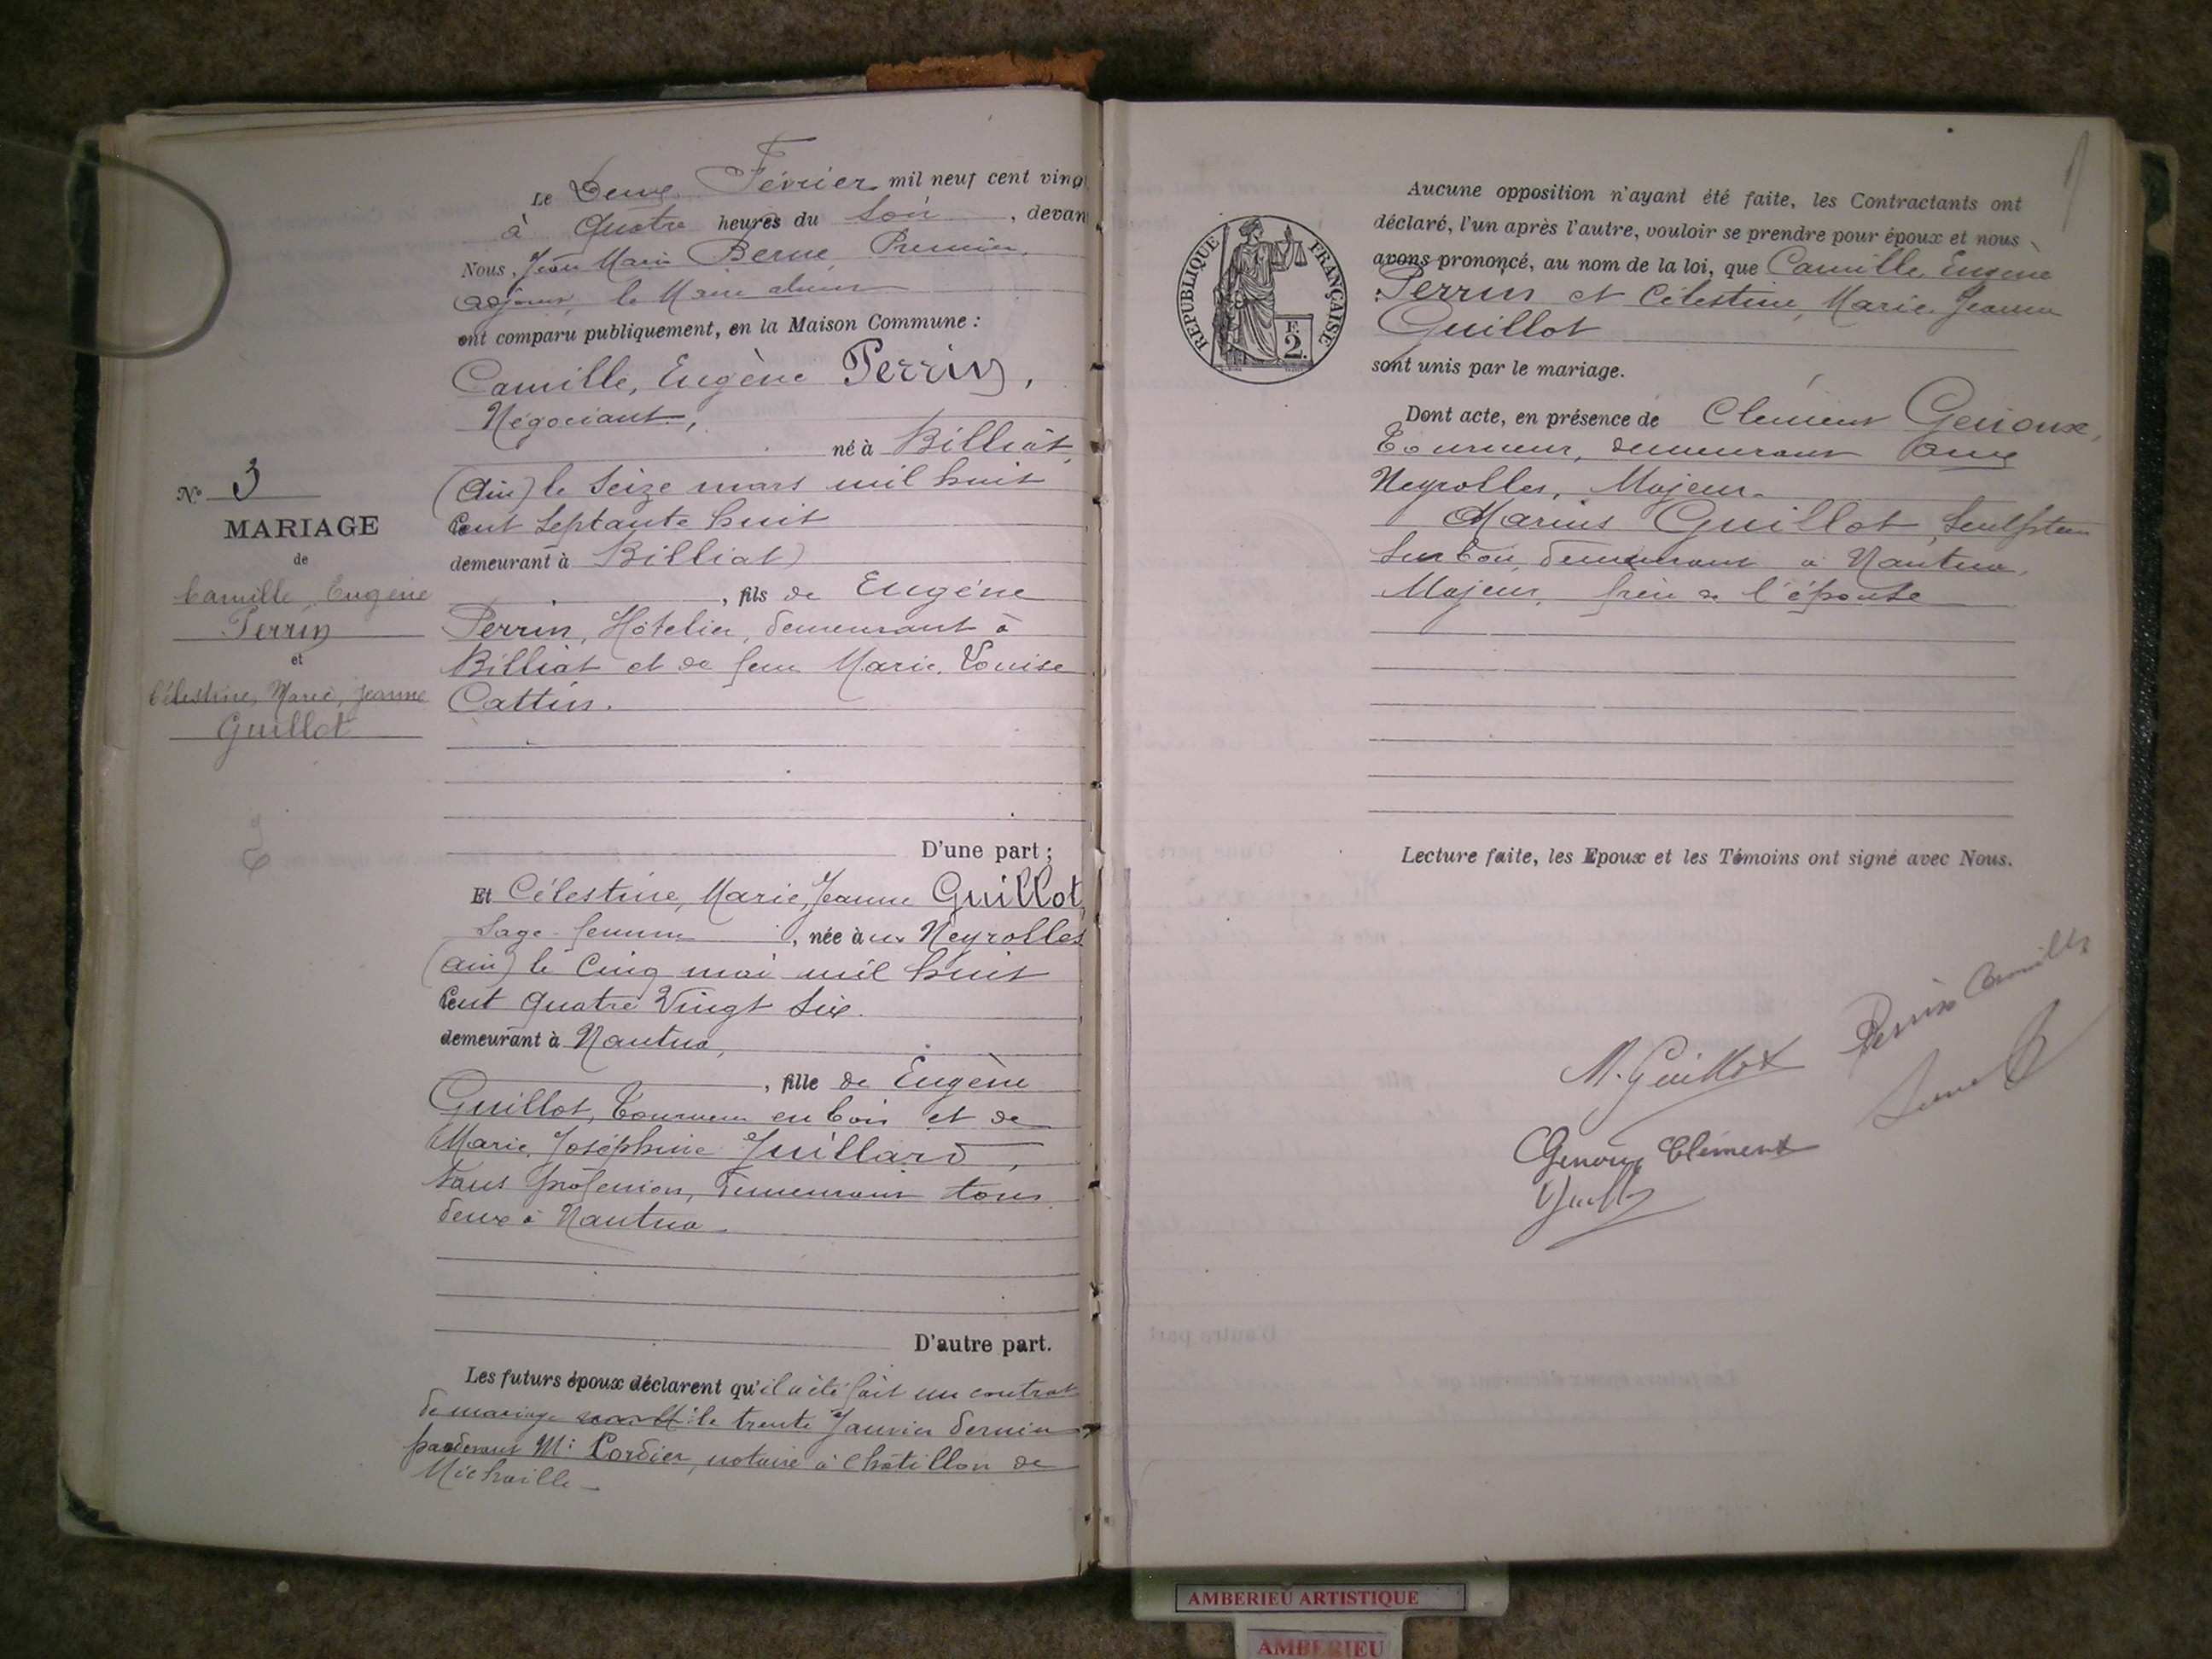 Le Deux Février mil neuf cent vingt
à Quatre heures du Soir, devant
Nous, Jean Marie Berne Premier
adjoint, le Maire absent
ont comparu publiquement, en la Maison Commune :
Camille, Eugène Perrin,
Négociant,
né à Billiat,
(Ain) le Seize mars mil huit
Cent Septante huit
demeurant à Billiat
, fils de Eugène
Perrin, Hôtelier, demeurant à
Billiat et de feue Marie, Louise
Cattin.
D'une part ;
Et Célestine, Marie, Jeanne Guillot,
Sage-femme, née aux Neyrolles
(Ain) le Cinq mai mil huit
Cent Quatre Vingt Six.
demeurant à Nantua,
, fille de Eugène
Guillot, Tourneur en bois et de
Marie, Joséphine Juillard,
sans profession, demeurant tous
deux à Nantua
D'autre part.
Les futurs époux déclarent qu'il a été fait un contrat
de mariage le trente Janvier dernier
pardevant Me Cordier, notaire à Châtillon de
Michaille
N° 3
MARIAGE
de
Camille Eugène
Perrin
et
Célestine, Marie, Jeanne
Guillot
RÉPUBLIQUE FRANÇAISE
F.
2.
Aucune opposition n'ayant été faite, les Contractants ont
déclaré, l'un après l'autre, vouloir se prendre pour époux et nous
avons prononcé, au nom de la loi, que Camille, Eugène
Perrin et Célestine, Marie, Jeanne
Guillot
sont unis par le mariage.
Dont acte, en présence de Clément Genoux,
Tourneur, demeurant aux
Neyrolles, Majeur.
Marius Guillot, Sculpteur
Sur bois, demeurant à Nantua,
Majeur, frère de l'épouse
Lecture faite, les Epoux et les Témoins ont signé avec Nous.
Perrin Camille
M. Guillot
Genoux Clément
AMBERIEU ARTISTIQUE
AMBERIEU